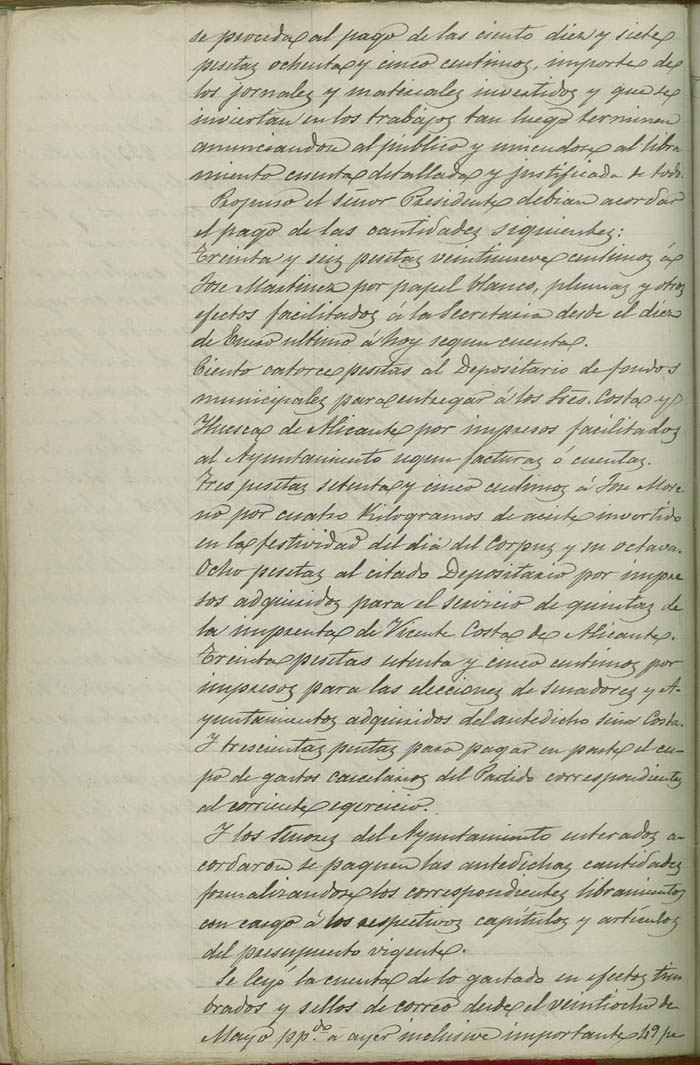 se proceda al pago de las ciento diez y siete
pesetas ochenta y cinco centimos, importe de
los jornales y materiales invertidos y que se
inviertan en los trabajos tan luego terminen
anunciandose al público y uniendose al libra
miento cuenta detallada y justificada de todo.
Propuso el señor Presidente debian acordar
el pago de las cantidades siguientes:
Treinta y seis pesetas veintinueve centimos á
Jose Martinez por papel blanco, plumas y otros
efectos facilitados á la Secretaria desde el diez
de Enero ultimo á hoy segun cuenta.
Ciento catorce pesetas al Depositario de fondos
municipales para entregar á los Sres. Costa y
Huesca de Alicante por impresos facilitados
al Ayuntamiento segun facturas ó cuentas.
Tres pesetas setenta y cinco centimos á Jose More
no por cuatro Kilogramos de aceite invertido
en la festividad del dia del Corpus y su octava.
Ocho pesetas al citado Depositario por impre
sos adquiridos para el servicio de quintas de
la imprenta de Vicente Costa de Alicante.
Treinta pesetas setenta y cinco centimos por
impresos para las elecciones de Senadores y A-
yuntamientos adquiridos del antedicho señor Costa.
Y trescientas pesetas para pagar en parte el cu-
po de gastos carcelarios del Partido correspondientes
al corriente egercicio.
Y los Señores del Ayuntamiento enterados a-
cordaron se paguen las antedichas cantidades
formalizandose los correspondientes libramientos
con cargo á los respectivos capitulos y artículos
del presupuesto vigente.
Se leyó la cuenta de lo gastado en efectos tim
brados y sellos de correo desde el veintiocho de
Mayo pp.do á ayer inclusive importante 49 pe